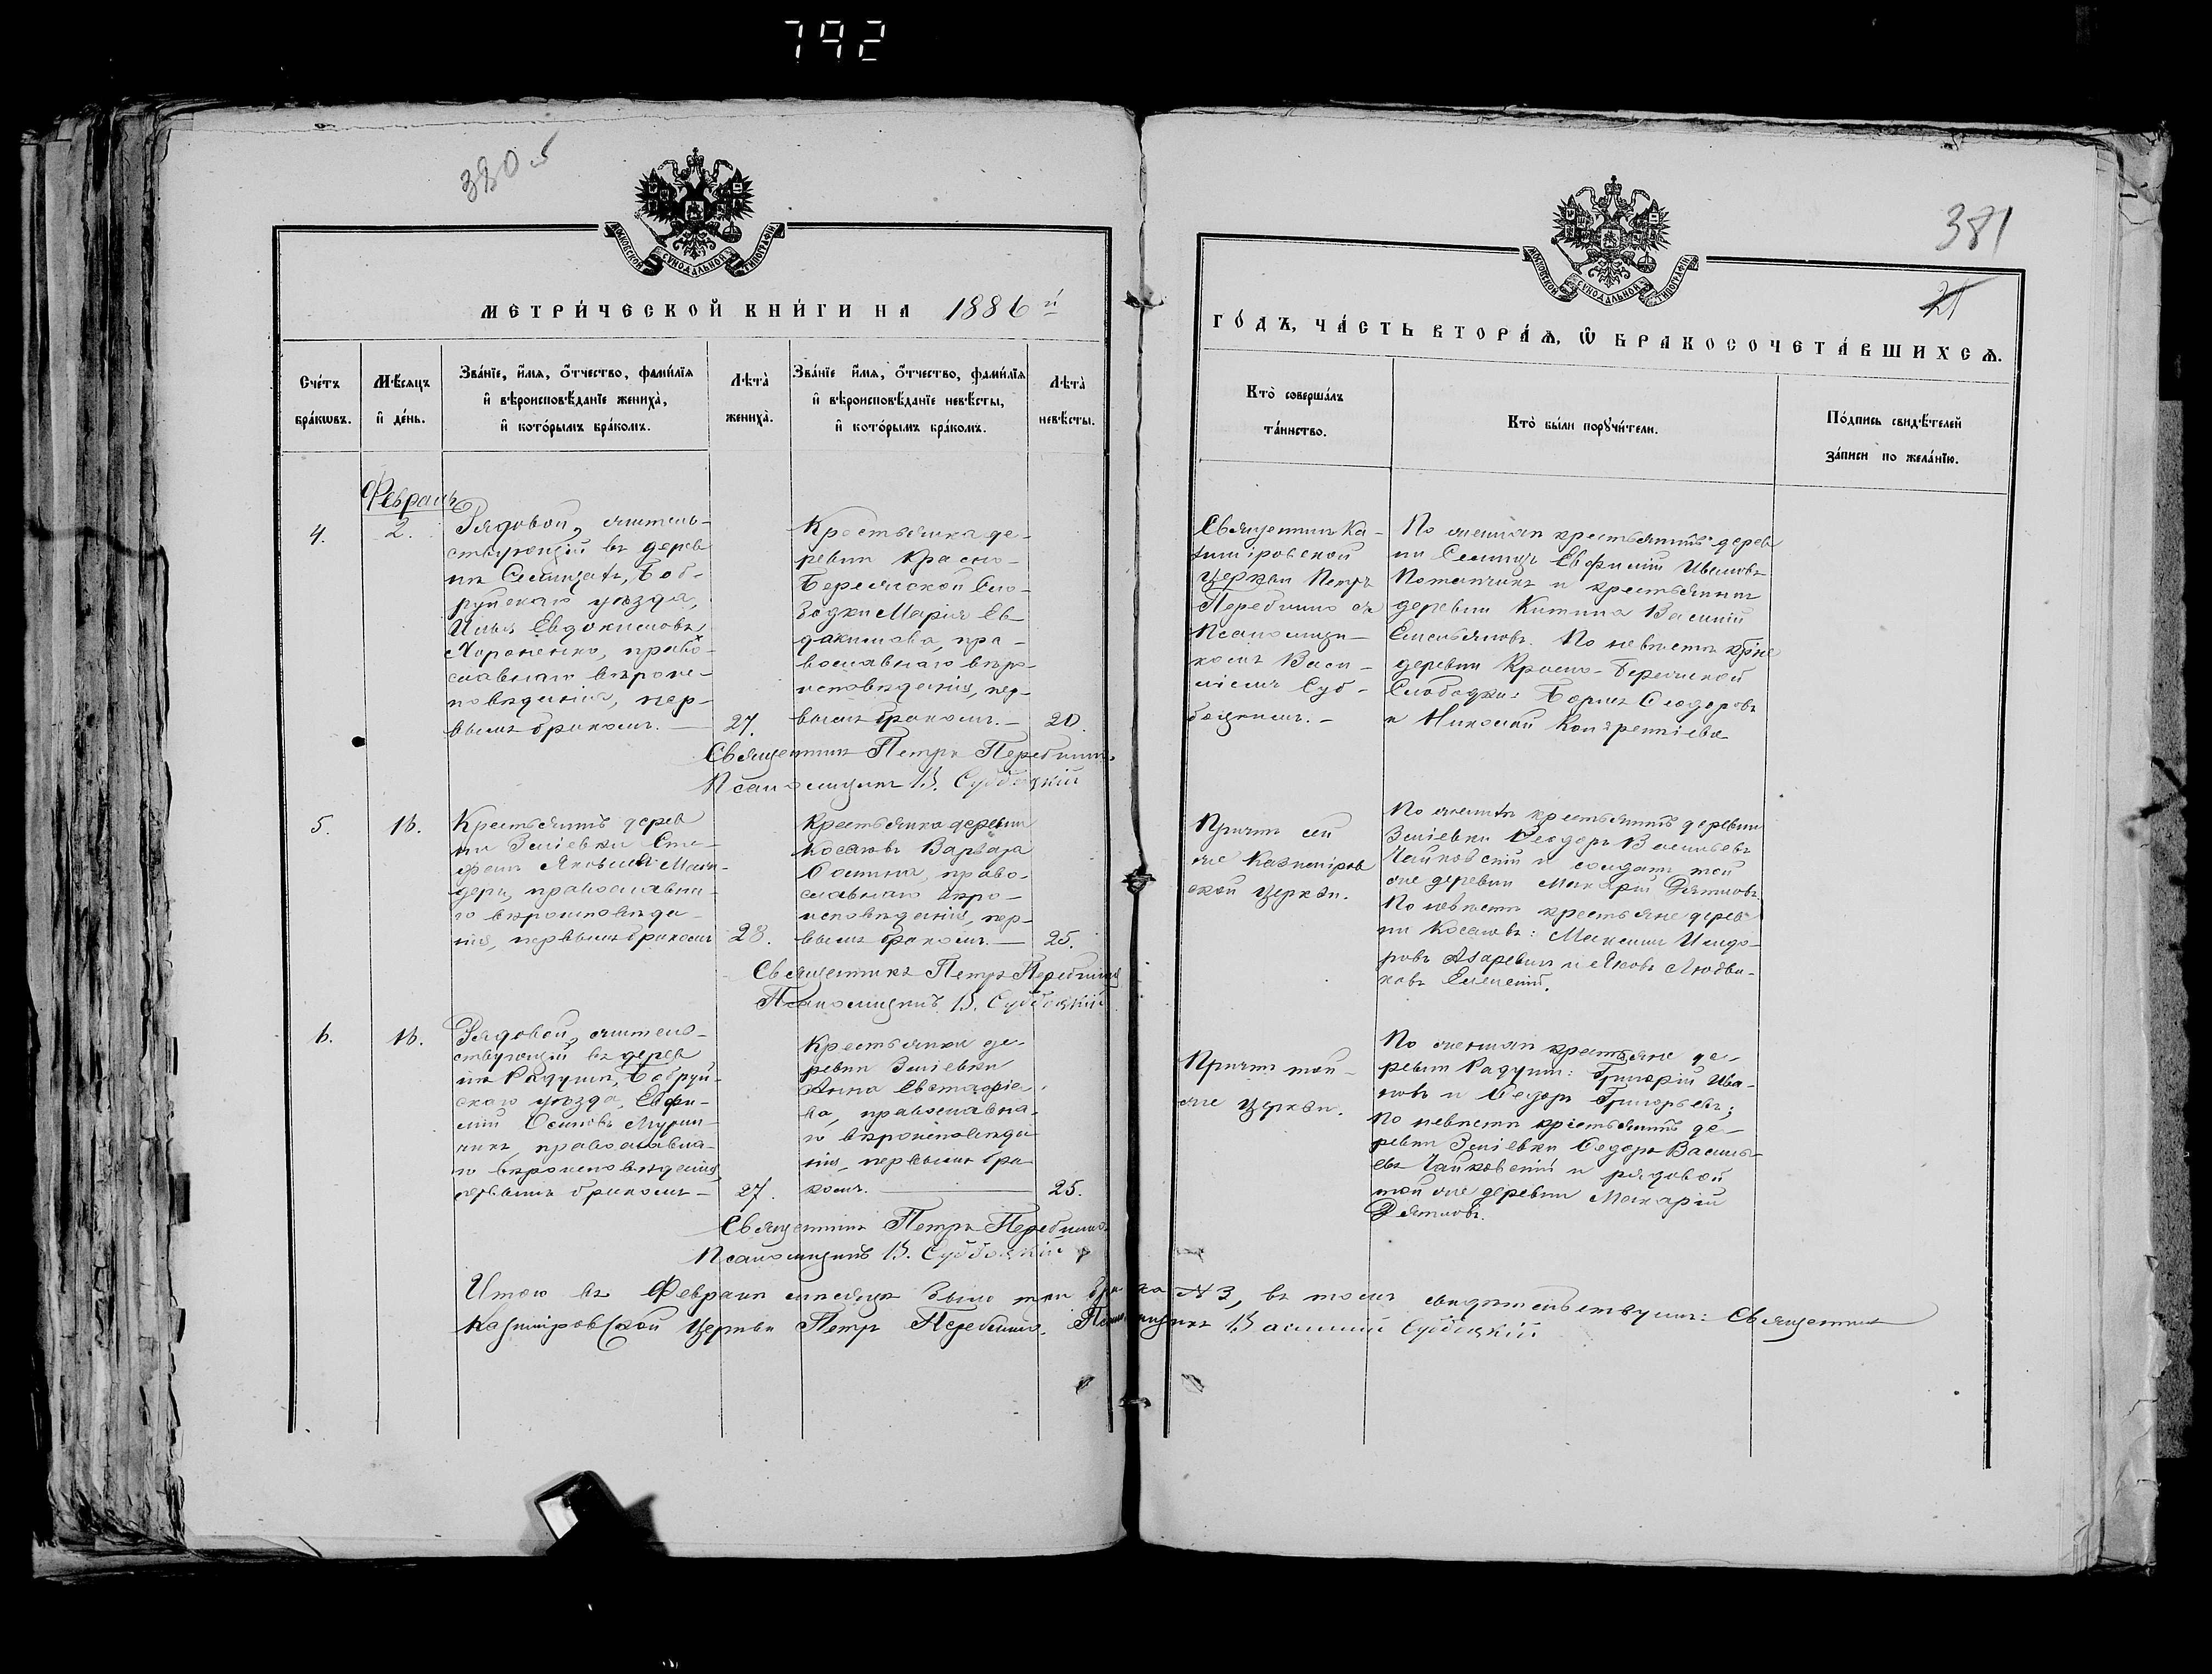 792
380 об
МОСКОВСКОЙ СѴНОДАЛЬНОЙ ТИПОГРАФІИ
МЕТРИ́ЧЕСКОЙ КНИ́ГИ НА 1886 й
Сче́тъ бра́кѡвъ.
Мѣ́сяцъ и҆ де́нь.
Зва́нїе, и҆́мя, ѻ҆́тчество, фами́лїя
и҆ вѣроисповѣ́данїе жениха̀,
и҆ кото́рымъ бра́комъ.
Лѣта̀ жениха̀.
Зва́нїе и҆́мя, ѻ҆́тчество, фами́лїя
и҆ вѣроисповѣ́данїе невѣ́сты,
и҆ кото́рымъ бра́комъ.
Лѣта̀ невѣ́сты.
Февраль
4.
2.
Рядовой, житель-
ствующій въ дерев
нѣ Селищахъ, Боб-
руйскаго уѣзда,
Илья Евдокимовъ
Хороненко, право-
славнаго вѣроис-
повѣданія, пер-
вымъ бракомъ. —
27.
Крестьянка де-
ревни Красно-
Бережской Сло-
бодки Марія Ев-
докимова, пра-
вославнаго вѣро-
исповѣданія, пер-
вымъ бракомъ. —
20.
Священникъ Петръ
Псаломщикъ В. Субботскій
5.
16.
Крестьянинъ дерев
ни Зміевки Сте-
фанъ Яковлевъ
православна-
го вѣроисповѣда-
нія, первымъ бракомъ
28.
Крестьянка деревни
Косаковъ Варвара
Фомина, право-
славнаго вѣро-
исповѣданія, пер-
вымъ бракомъ. —
25.
Священникъ Петръ
Псаломщикъ В. Субботскій
6.
16.
Рядовой, житель-
ствующій въ дерев
нѣ Радушѣ, Бобруй-
скаго уѣзда, Евфи-
мій Осиповъ
православна-
го вѣроисповѣданія,
первымъ бракомъ —
27.
Крестьянка де-
ревни Зміевки
Анна Евстафіе-
ва, православна-
го вѣроисповѣда
нія, первымъ бра
комъ. —
25.
Священникъ Петръ
Псаломщикъ В. Субботскій
Итого въ Февралѣ мѣсяцѣ было три брака № 3, въ томъ свидѣтельствуемъ: Священникъ
Казиміровской Церкви Петръ Псаломщикъ Василий Субботскій
381
21
МОСКОВСКОЙ СѴНОДАЛЬНОЙ ТИПОГРАФІИ
ГО́ДЪ, ЧА́СТЬ ВТОРА́Ѧ, Ѽ БРАКОСОЧЕТА́ВШИХСѦ.
Кто̀ соверша́лъ
та́инство.
Кто̀ бы́ли порꙋчи́тели.
По́дпись свидѣ́телей
за́писи по жела́нїю.
Священникъ Ка-
зиміровской
Церкви Петръ
съ
Псаломщи-
комъ Васи-
ліемъ Суб-
ботскимъ. —
По женихѣ крестьянинъ дерев
ни Селищъ Евфимій Ивановъ
Потапчикъ и крестьянинъ
деревни Китина Василій
Емельяновъ. По невѣстѣ кр-не
деревни Красно-Бережской
Слободки: Борисъ Сидоровъ
и Николай
Причтъ сей
же Казиміров
ской Церкви.
По женихѣ крестьянинъ деревни
Зміевки Феодоръ Васильевъ
Чайковскій и солдатъ той
же деревни Макарій Дятловъ.
По невѣстѣ крестьяне дерев
ни Косаковъ: Максимъ Исидо-
ровъ Азаревичъ и Яковъ
Причтъ той-
же Церкви.
По женихѣ крестьяне де-
ревни Радуши: Григорій Ива-
новъ и Федоръ Григорьевъ;
По невѣстѣ крестьянинъ де-
ревни Зміевки Федоръ Василь-
евъ Чайковскій и рядовой
той же деревни Макарій
Дятловъ.